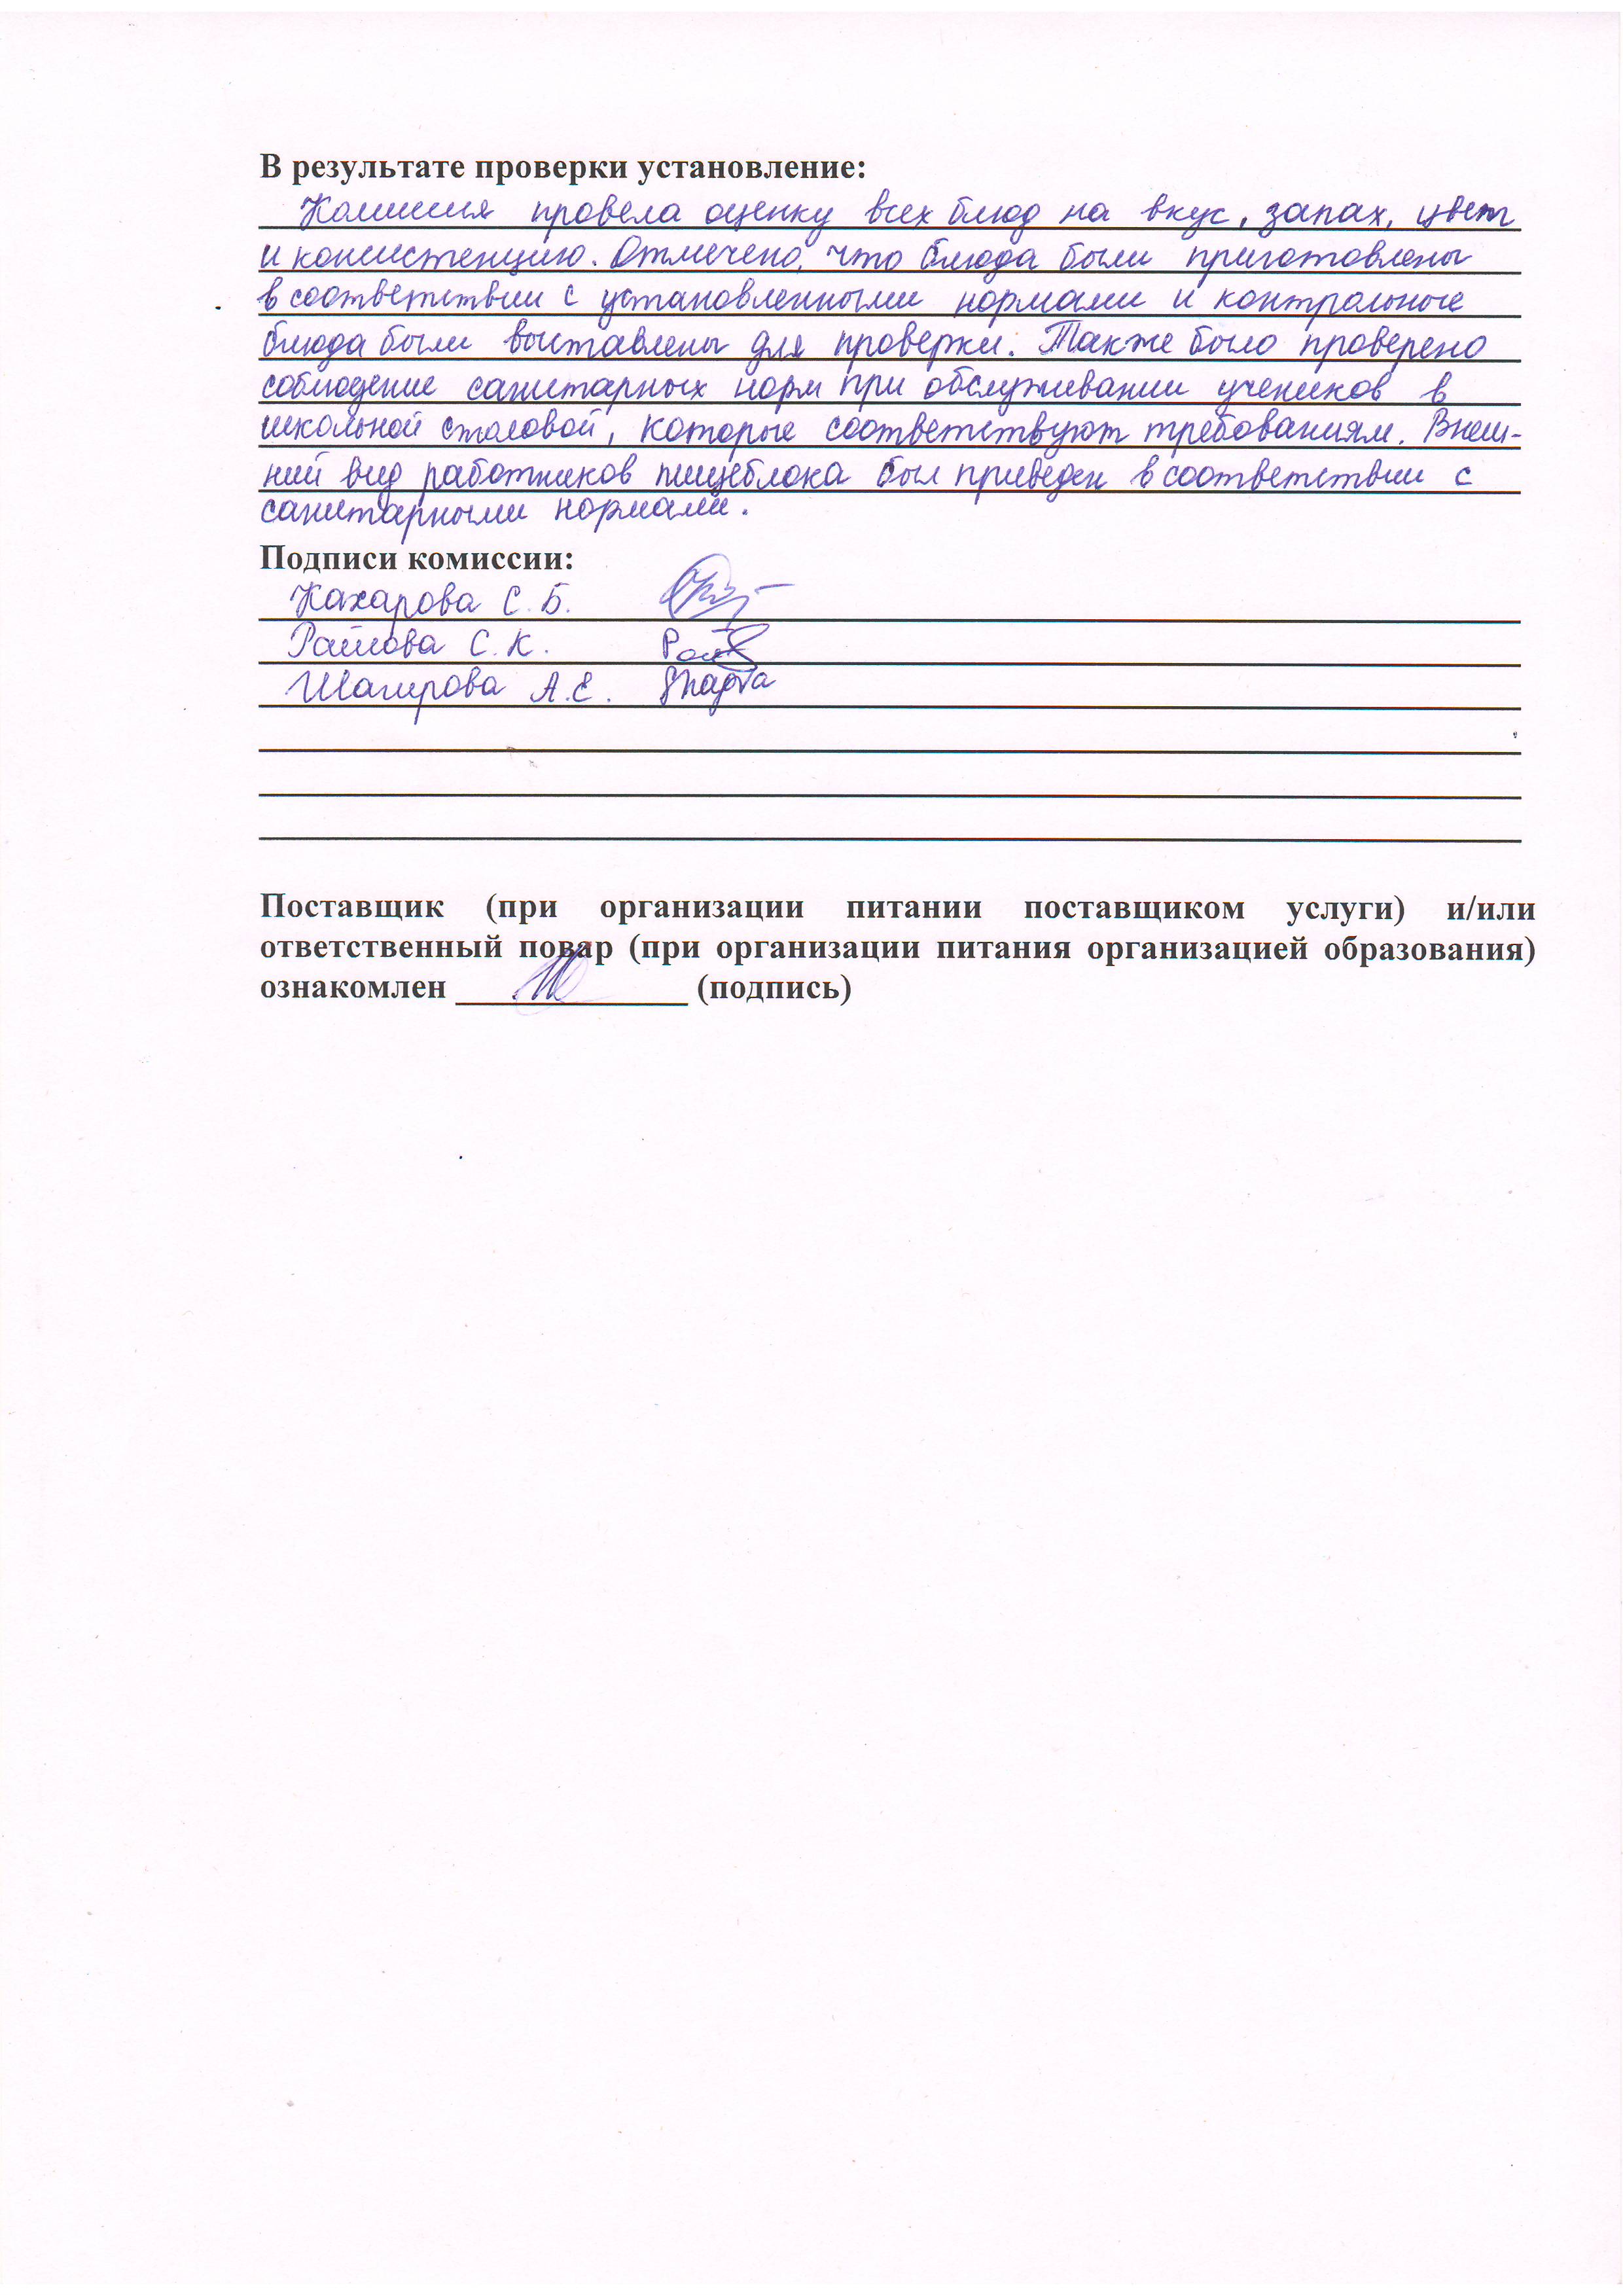 В результате проверки установление:
Комиссия провела оценку всех блюд на вкус, запах, цвет
и консистенцию. Отмечено, что блюда были приготовлены
в соответствии с установленными нормами и контрольные
блюда были выставлены для проверки. Также было проверено
соблюдение санитарных норм при обслуживании учеников в
школьной столовой, которые соответствуют требованиям. Внеш-
ний вид работников пищеблока был приведен в соответствии с
санитарными нормами.
Подписи комиссии:
Кахарова С.Б.
С.К.
Шагирова А.Е.
Поставщик (при организации питании поставщиком услуги) и/или
ответственный повар (при организации питания организацией образования)
ознакомлен ______________ (подпись)